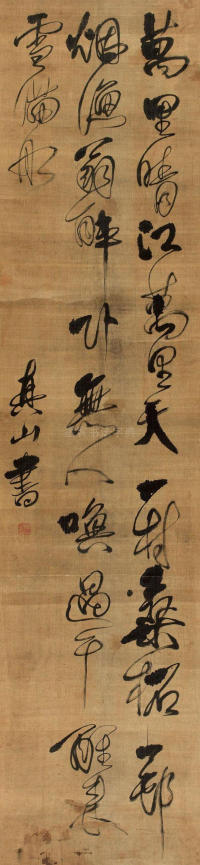 萬里晴江萬里天一村桑柘一邨
烟漁翁醉卧無人喚過午醒来
雪滿船
真山書